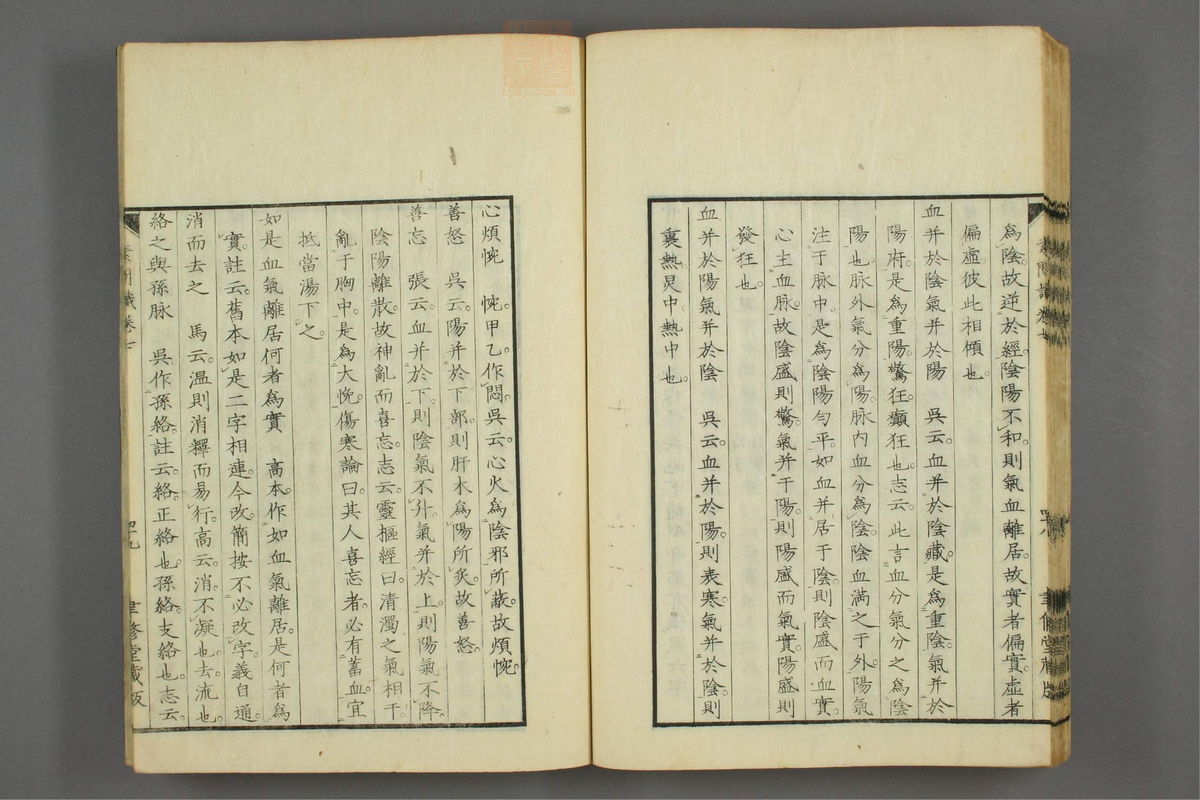 爲陰故逆於經陰陽不和則氣血離居故實者偏實虛者
偏虛彼此相傾也
血并於陰氣并於陽　吳云血并於陰藏是爲重陰氣并於
陽府是爲重陽驚狂癲狂也志云此言血分氣分之爲陰
陽也脉外氣分爲陽脉内血分爲陰陰血滿之于外陽氣
注于脉中是爲陰陽勻平如血并居于陰則陰盛而血實
心主血脉故陰盛則驚氣并于陽則陽盛而氣實陽盛則
發狂也
血并於陽氣并於陰　吳云血并於陽則表寒氣并於陰則
裏熱炅中熱中也
心煩惋　惋甲乙作悶吳云心火爲陰邪所蔽故煩惋
善怒　吳云陽并於下部則肝木爲陽所炙故善怒
善忘　張云血并於下則陰氣不升氣并於上則陽氣不降
陰陽離散故神亂而喜忘志云靈樞經曰清濁之氣相干
亂于胸中是爲大悗傷寒論曰其人喜忘者必有蓄血宜
抵當湯下之
如是血氣離居何者爲實　高本作如血氣離居是何者爲
實註云舊本如是二字相連今改簡按不必改字義自通
消而去之　馬云溫則消釋而易行高云消不凝也去流也
絡之與孫脉　吳作孫絡註云絡正絡也孫絡支絡也志云
素問識卷七
四十九
聿修堂藏版